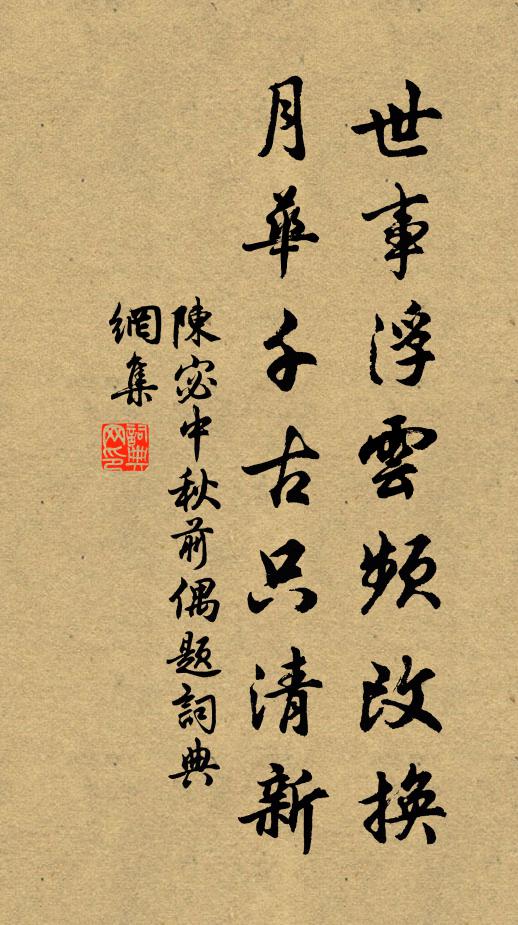 世事浮雲頻改換
月華千古只清新
陳宓中秋前偶題詞典
網集
詞典網印